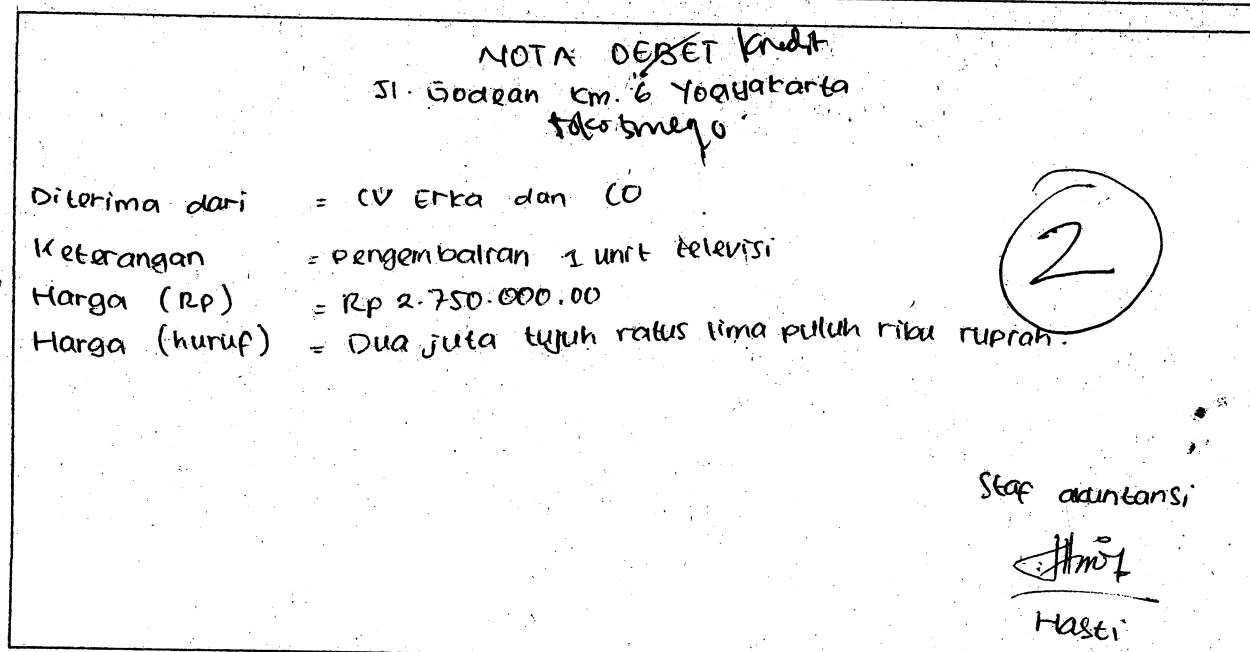 NOTA DEBET Kredit
Jl. Godean Km. 6 Yogyakarta
Diterima dari = CV Erka dan CO
Keterangan = pengembalian 1 unit televisi
Harga (Rp) = Rp 2.750.000.00
Harga (huruf) = Dua juta tujuh ratus lima puluh ribu rupiah.
2
Staf akuntansi
Hasti